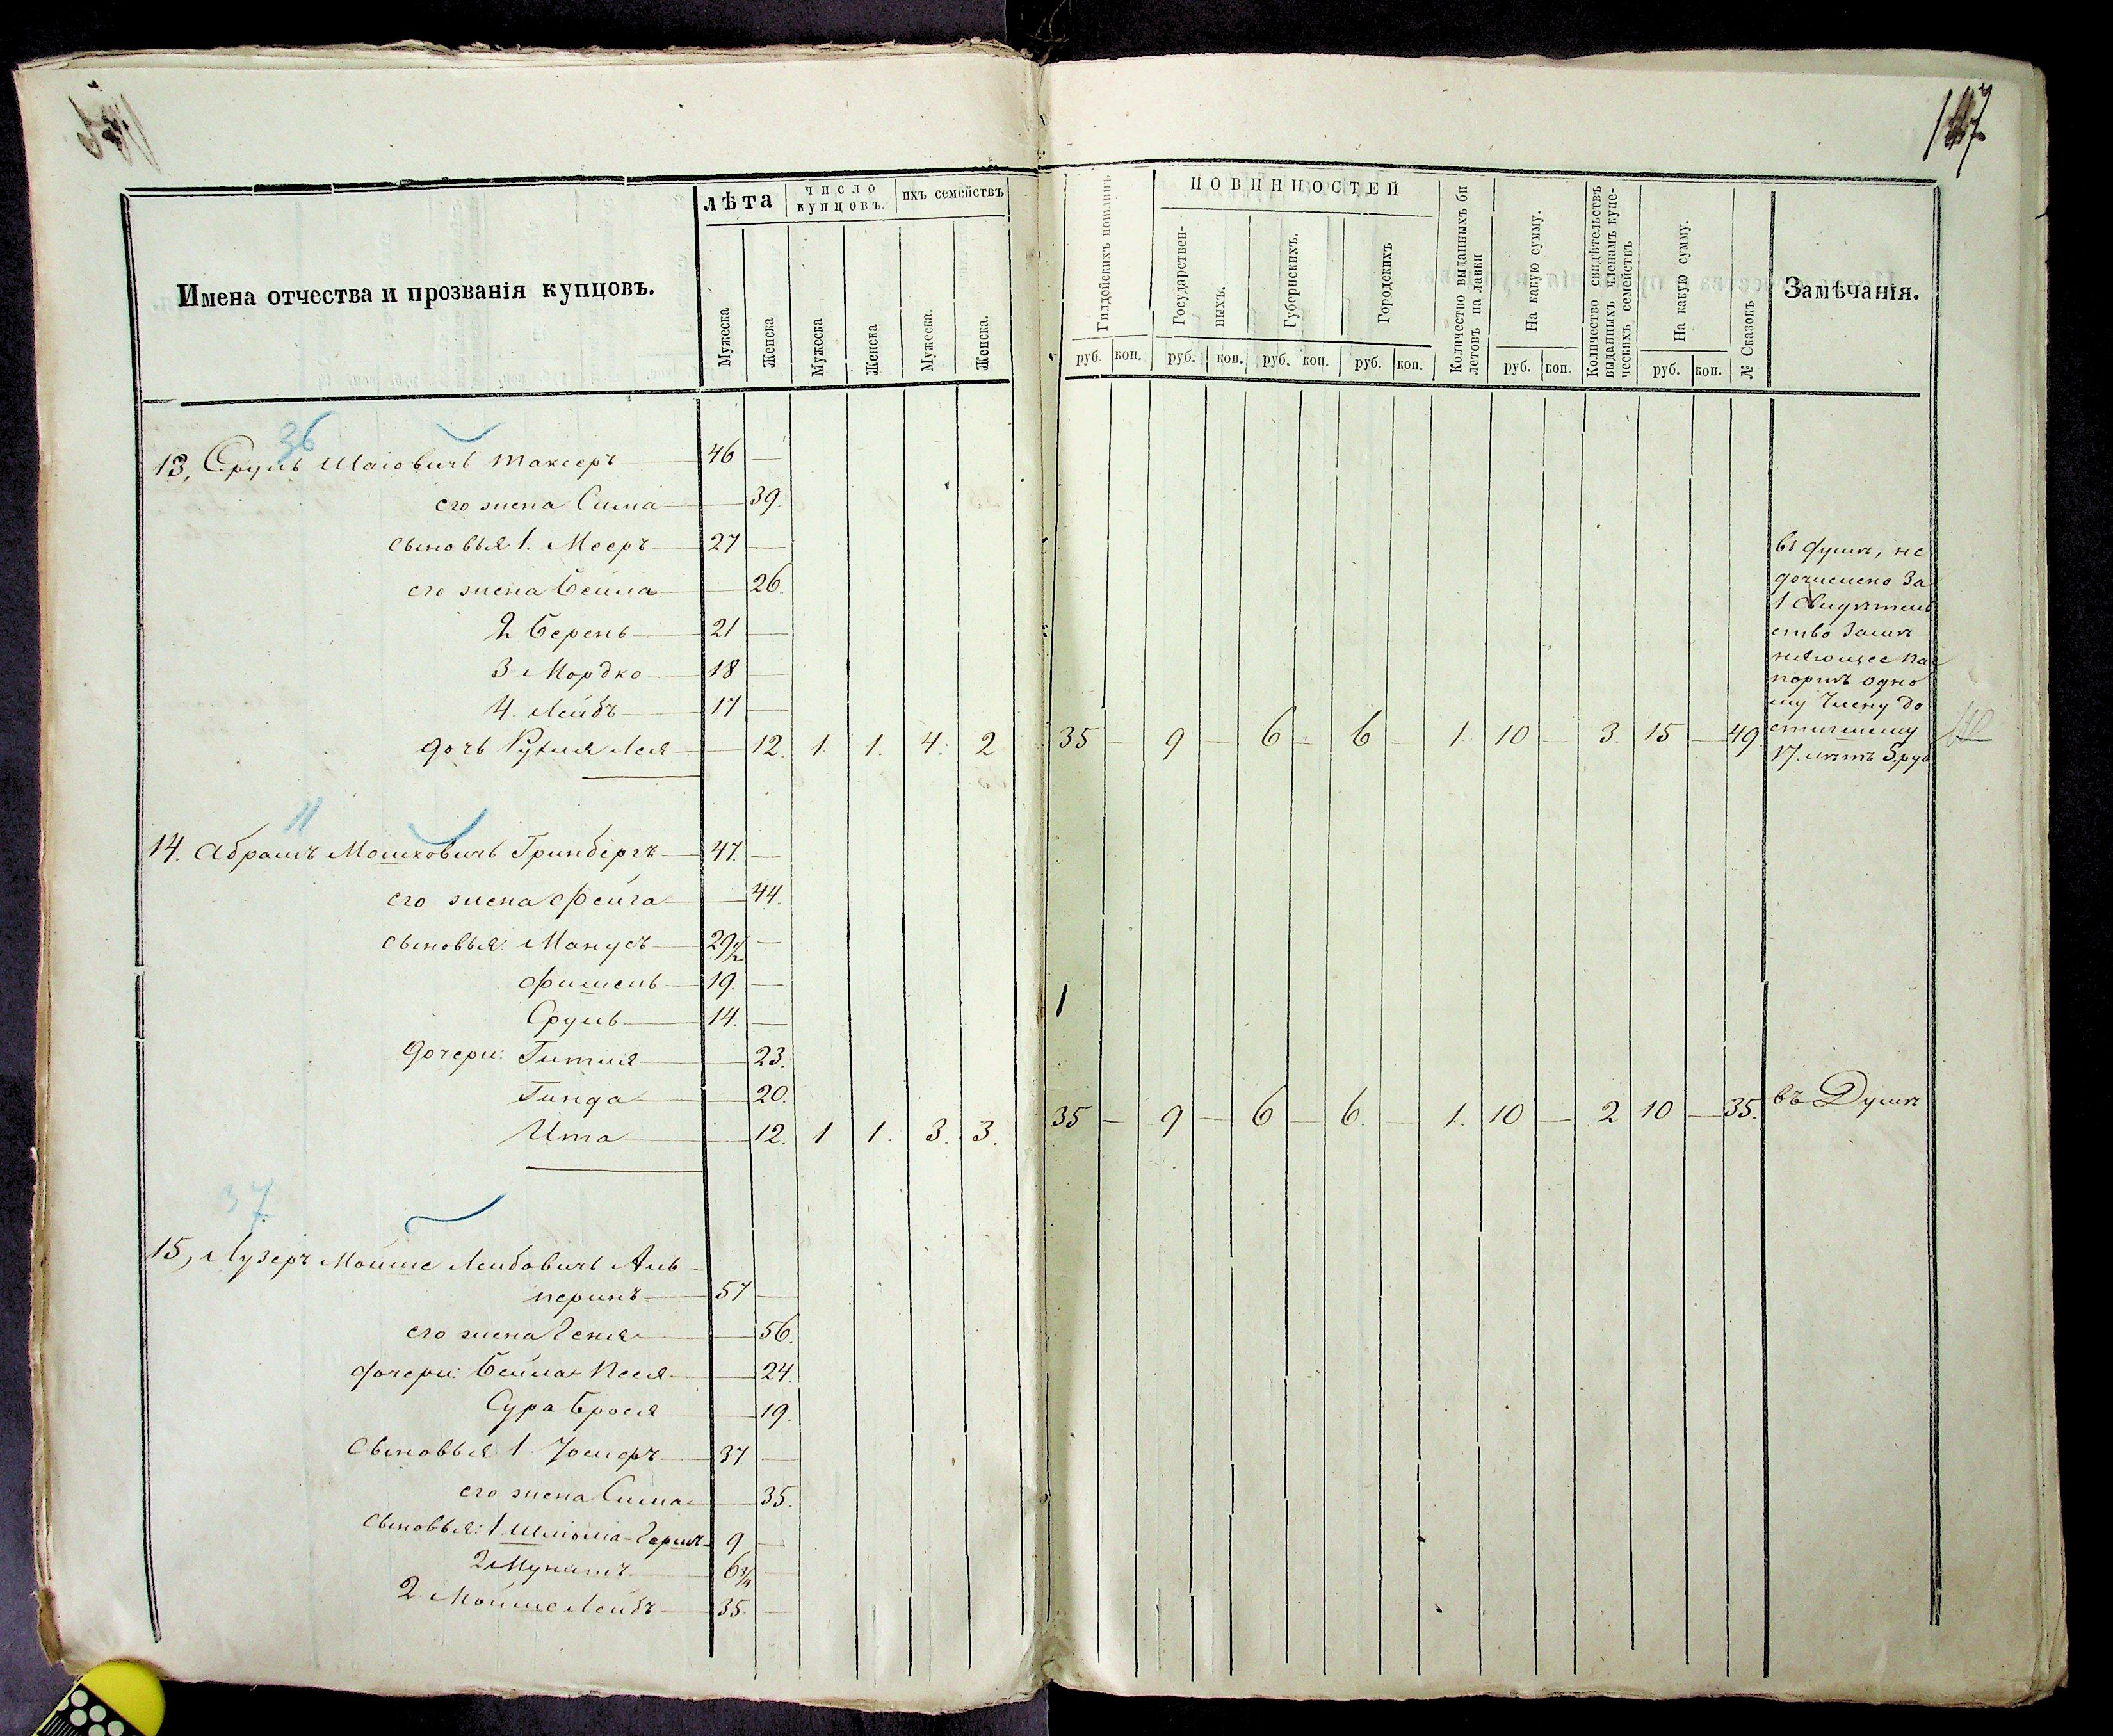 147
Имена отчества и прозванія купцовъ.
лѣта
число купцовъ.
ихъ семействъ
Мужеска
Женска
Мужеска
Женска
Мужеска.
Женска.
Гилдейскихъ пошлинъ
ПОВИННОСТЕЙ
Государствен-
ныхъ.
Губернскихъ.
Городскихъ
Количество выданныхъ би
летовъ на лавки
На какую сумму.
Количество свидѣтельствъ
выданныхъ членамъ купе-
ческихъ семействъ
На какую сумму.
№ Сказокъ
Замѣчанія.
руб. коп. руб. коп. руб. коп. руб. коп. руб. коп. руб. коп.
36
13, Сруль Шаіовичъ Таксеръ 46 —
его жена Сима — 39.
сыновья 1. Мееръ 27 —
его жена Бейла — 26.
2 Берень 21 —
3 Мордко 18 —
4. Лейбъ 17 —
дочь Рухля Лея — 12. 1. 1. 4. 2 35 — 9 — 6 — 6 — 1. 10 — 3. 15 — 49.
въ Думѣ, не
дочислено за
1 свидѣтель
ство замѣ
няющее пас
портъ одно
му члену до
стигшему
17. лѣтъ 5 руб
11
14. Абрамъ Мошковичъ Гринбергъ 47. —
его жена Фейга — 44.
сыновья: Манусъ 29 1/2 —
Фишель 19. —
Сруль 14. —
дочери: Гитля — 23.
Гинда — 20.
Ита — 12. 1 1. 3. 3. 35 — 9 — 6 — 6. — 1. 10 — 2 10 — 35. въ Думѣ
37
15, Лузеръ Мойше Лейбовичъ Аль-
перинъ 57 —
его жена Геня — 56.
дочери: Бейла Песя — 24.
Сура Брося — 19.
Сыновья 1 Іосифъ 37. —
его жена Сима — 35.
сыновья: 1 Шліома-Гершъ 9 —
2 6 3/4 —
2. Мойше Лейбъ 35. —